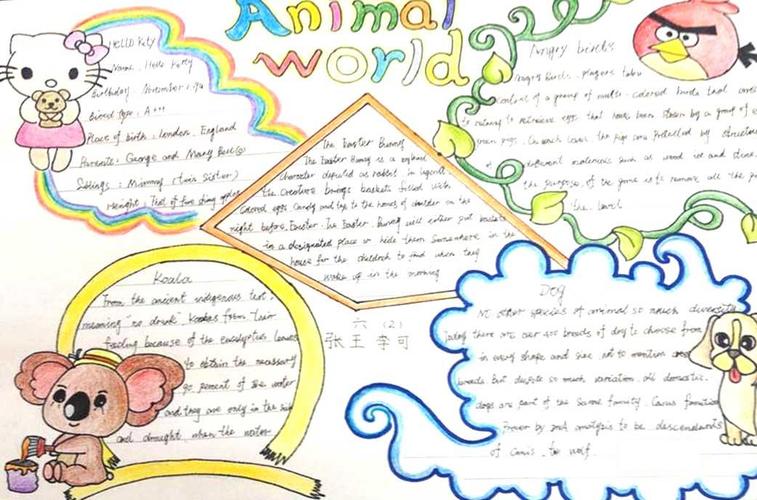 Animal
world
Hello Kitty
Name: Hello Kitty
Birthday: November 1
Blood type: A+++
Place of birth: london, England
Parents: George and Mary
Siblings: Mimmy (twin sister)
Height:
The Easter Bunny
The Easter Bunny is a
character depicted as rabbit in legend
the Creature brings baskets filled with
colored eggs candy and toy to the homes of children on the
night before Easter. The Easter Bunny will either put baskets
in a designated place or hide them somewhere in the
house for the children to find when they
wake up in the morning
Angry birds
Angry Birds players take
control of a group of multi-colored birds that
to retrieve eggs that have been stolen by a group of
green pigs. On each level the pigs are protected by structures
different materials such as wood and stone.
the purpose of the game is to remove all the
the level
Koala
From the ancient indigenous text.
meaning "no drink" koalas from their
feeding because of the eucalyptus leaves
to obtain the necessary
90 percent of the water
and they are only in the sick
and drought when the water.
六（2）
张王李可
Dog
other species of animal so much diversity
today there are over 400 breeds of dog to choose from
in every shape and size not to mention
But despite so much variation. All domestic.
dogs are part of the same family.
Proven by analysis to be descendants
of Canis. to wolf.